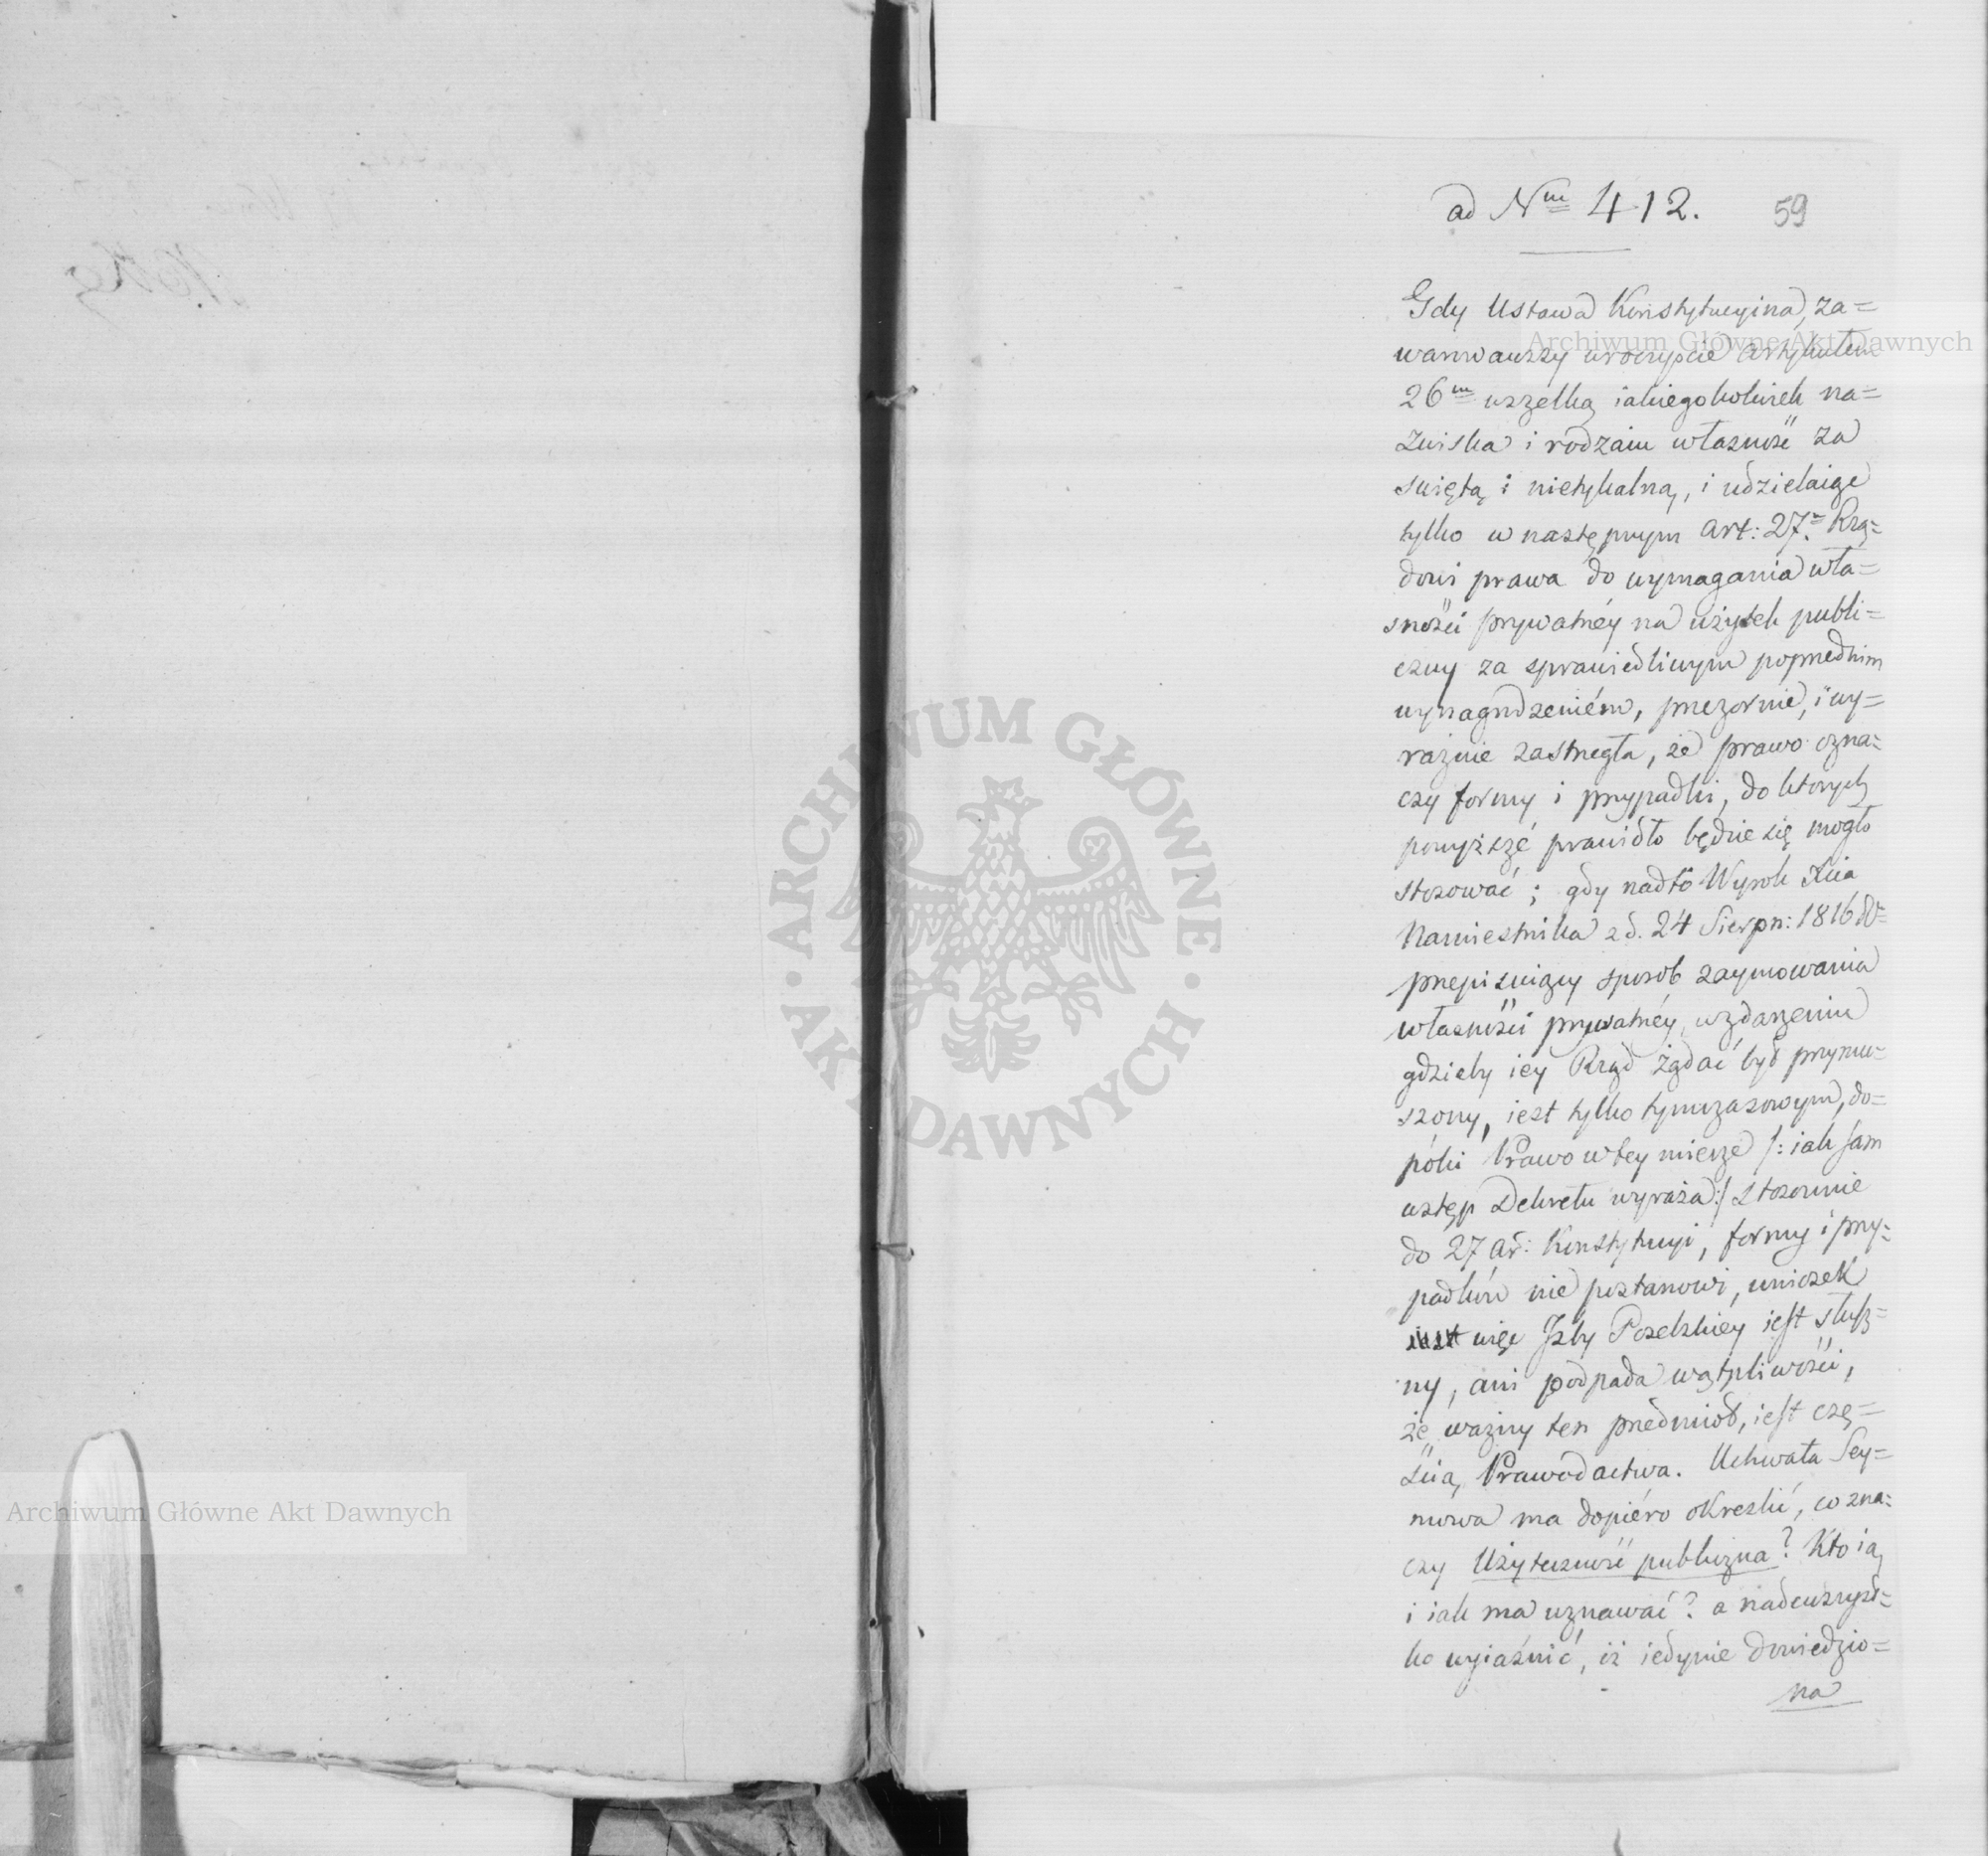 ad N<sup>m</sup> 412.
59
Gdy Ustawa Konstytucyina, za=
warowawszy uroczyście artykułem
26<sup>m</sup> wszelką iakiegokolwiek na=
zwiska i rodzaiu własność za
swiętą i nietykalną, i udzielaiąc
tylko w następnym art: 27. Rzą=
dowi prawa do wymagania wła=
sności prywatnéy na użytek publi=
czny za sprawiedliwym poprzednim
wynagrodzeniém, przezornie, i wy=
raźnie zastrzegła, że prawo ozna=
czy formy i przypadki, do ktorych
powyższé prawidło będzie się mogło
stosować; gdy nadto Wyrok Xcia
Namiestnika z d. 24 Sierpn: 1816
przepisuiący sposob zaymowania
własności prywatnéy, w zdarzeniu
gdzieby iey Rząd żądać był przymu=
szony, iest tylko tymczasowym, do=
póki Prawo w tey mierze /: iak sam
wstęp Dekretu wyraża :/ stosownie
do 27 ar: Konstytucyi, formy i przy=
padków nie postanowi, wniosek
więc Izby Poselskiéy iest słusz=
ny, ani podpada wątpliwości,
że ważny ten przedmiot, iest czę=
ścią Prawodactwa. Uchwała Sey=
mowa ma dopiéro okreslić, co zna=
czy Użyteczność publiczna? Kto ią
i iak ma uznawać? a nadewszyst=
ko wyiaśnić, iż iedynie dowiedzio=
na
Archiwum Główne Akt Dawnych
ARCHIWUM GŁÓWNE · AKT DAWNYCH ·
Archiwum Główne Akt Dawnych